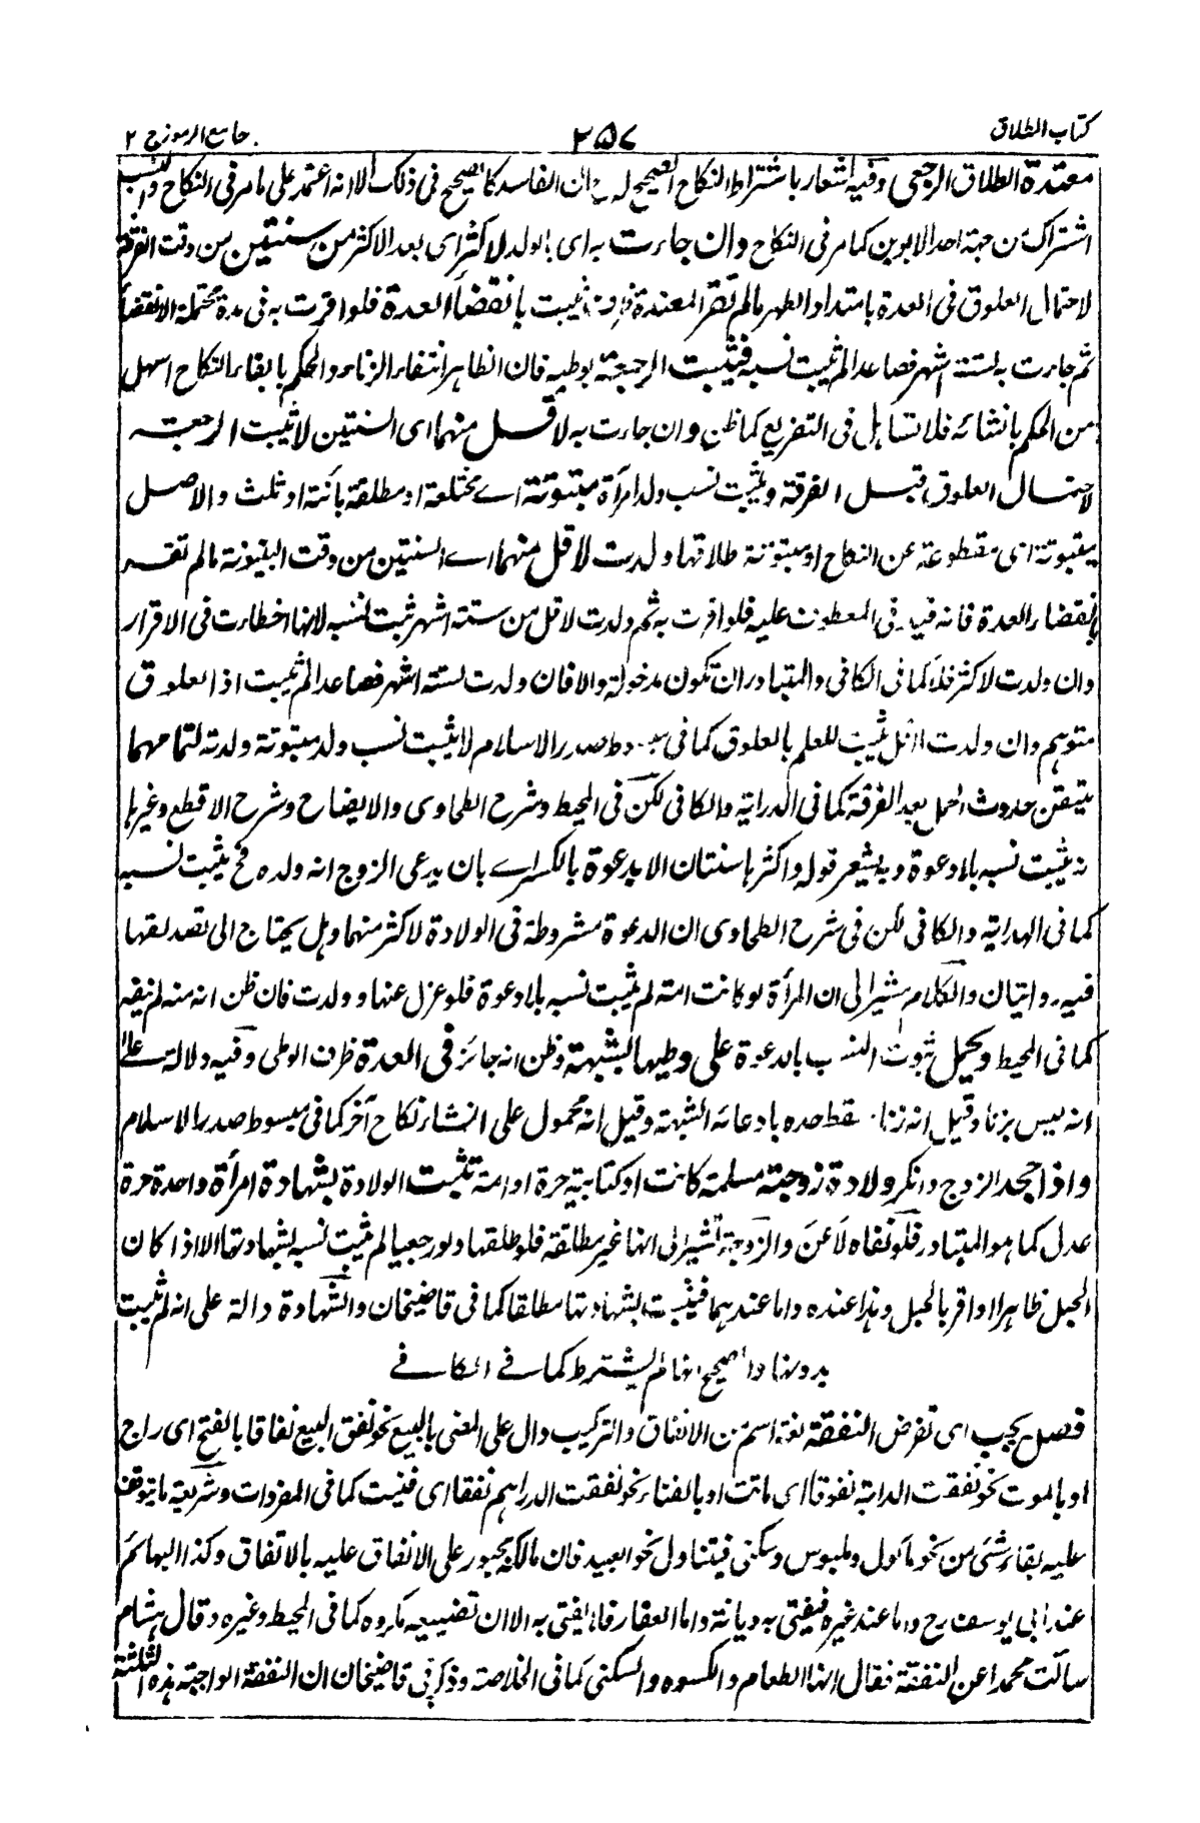 كتاب الطلاق
۲۵۷
جامع الرموز ج ۲
معتدة الطلاق الرجعى وفيه اشعار باشتراط النكاح الصحيح ان الفاسد كالصحيح فى ذلك الا انه اعتمد على ما مر فى النكاح والنسب
اشتراك من جهة احد الابوين كما مر فى النكاح وان جاءت به اى بالولد لاكثر اى بعد الاكثر من سنتين من وقت الفرقة
لاحتمال العلوق فى العدة بامتداد الطهر مالم تقر المعتدة بانقضاء العدة فلو اقرت به فى مدة محتملة الانقضاء
ثم جاءت به لستة اشهر فصاعدا لم يثبت نسبه فيثبت الرجعة بوطيه فان الظاهر انتفاء الزناء والحكم بابقاء النكاح اسهل
من الحكم بانشائه فلا تساهل فى التفريع كما ظن وان جاءت به لاقل منهما اى السنتين لا يثبت الرجعة
لاحتمال العلوق قبل الفرقة ويثبت نسب ولد امرأة مبتوتة اے مختلعة او مطلقة بائنة او ثلث والاصل
مبتوتة اى مقطوعة عن النكاح او مبتوتة طلاقها ولدت لاقل منهما اے السنتين من وقت البينونة مالم تقر
بانقضاء العدة فانه قيد فى المعطوف عليه فلو اقرت به ثم ولدت لاقل من ستة اشهر ثبت نسبه لانها اخطاءت فى الاقرار
وان ولدت لاكثر فلا كما فى الكافى والمتبادر ان تكون مدخولة والا فان ولدت لستة اشهر فصاعدا لم يثبت اذ العلوق
متوهم وان ولدت لاقل يثبت للعلم بالعلوق كما فى مبسوط صدر الاسلام لا يثبت نسب ولد مبتوتة ولدته لتمامهما
لتيقن حدوث الحمل بعد الفرقة كما فى الدراية والكافى لكن فى المحيط وشرح الطحاوى والايضاح وشرح الاقطع وغيرها
يثبت نسبه بلا دعوة وبه يشعر قوله واكثرها سنتان الا بدعوة بالكسر اے بان يدعى الزوج انه ولده فح يثبت نسبه
كما فى الهداية والكافى لكن فى شرح الطحاوى ان الدعوة مشروطة فى الولادة لاكثر منهما وهل يحتاج الى تصديقها
فيه روايتان والكلام مشير الى ان المرأة لو كانت امته لم يثبت نسبه بلا دعوة فلو عزل عنها وولدت فان ظن انه منه لم ينفه
كما فى المحيط ويحمل ثبوت النسب بالدعوة على وطيها بشبهة وظن انه جائز فى العدة ظرف الوطى وفيه دلالة على
انه ليس بزنا وقيل انه زنا سقط حده بادعائه الشبهة وقيل انه محمول على انشاء نكاح آخر كما فى مبسوط صدر الاسلام
واذا جحد الزوج وانكر ولادة زوجته مسلمة كانت او كتابية حرة او امة تثبت الولادة بشهادة امرأة واحدة حرة
عدل كما هو المتبادر فلو نفاه لاعن والزوجة تشير الى انها غير مطلقة فلو طلقها ولو رجعيا لم يثبت نسبه بشهادتها الا اذا كان
الحبل ظاهرا او اقر بالحبل وهذا عنده واما عندهما فيثبت بشهادتها مطلقا كما فى قاضيخان والشهادة دالة على انه لم يثبت
بدونها والصحيح انها لم يشترط كما فے الكافے
فصل يجب اى تفرض النفقة لغة اسم من الانفاق والتركيب دال على المضى بالبيع نحو نفق البيع نفاقا بالفتح اى راج
او بالموت نحو نفقت الدابة نفوقا اى ماتت او بالفناء نحو نفقت الدراهم نفقا اى فنيت كما فى المفردات وشريعة ما يتوقف
عليه بقاء شئ من نحو ماكول وملبوس وسكنى فيتناول نحو العبيد فان مالكه مجبور على الانفاق عليه بالاتفاق وكذا البهائم
عند ابى يوسف رح واما عند غيره فيفتى به ديانة واما العقار فلا يفتى به الا ان تضييعه مكروه كما فى المحيط وغيره وقال هشام
سالت محمدا عن النفقة فقال انها الطعام والكسوه والسكنى كما فى الخلاصة وذكر فى قاضيخان ان النفقة الواجبة هذه الثلثة